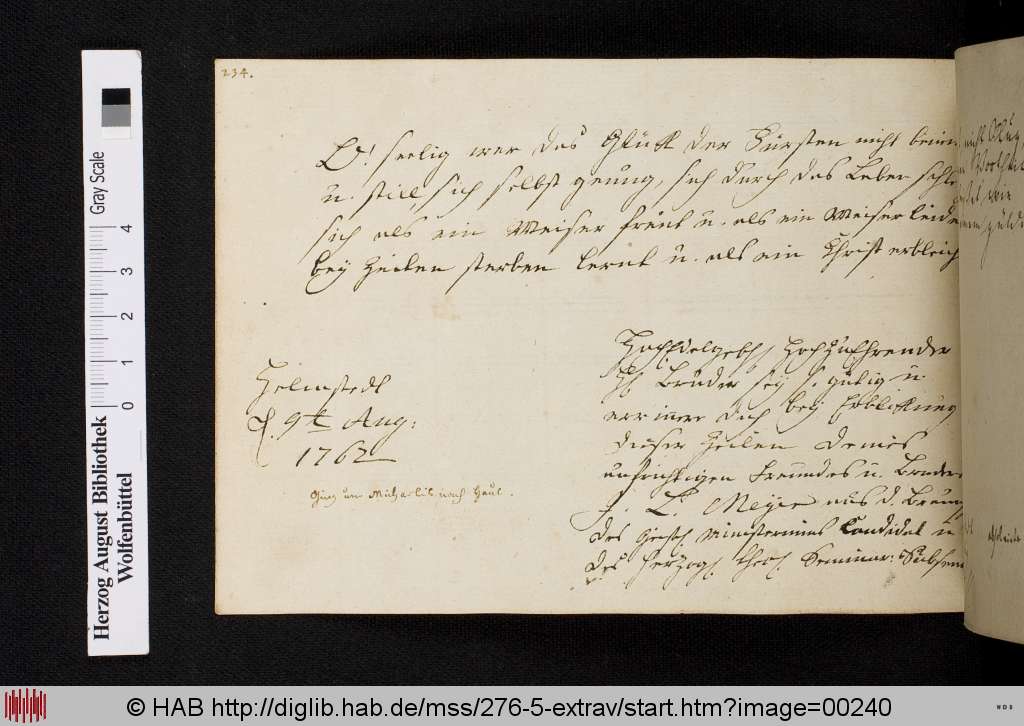 234.
O! seelig wer das Glück der Fürsten nicht benei
u. still, sich selbst genug, sich durch das Leben schl
sich als ein Weiser freut u. als ein Weiser leide
bey Zeiten sterben lernt u. als ein Christ erbleich
Helmstedt
d. 9t Aug:
1762
Ging um Michaelis nach Hause.
HochEdelgebh. HochzuEhrender
Hr. Bruder sey so gütig u.
erinner dich bey Erblickung
dieser Zeilen deines
aufrichtigen Freundes u. Bruder
J. L. Meyer aus d. Braun
des Ministeriums Candidat u.
des Herzogl. theol. Seminar: Subsen
Gray Scale
0 1 2 3 4
Herzog August Bibliothek
Wolfenbüttel
© HAB http://diglib.hab.de/mss/276-5-extrav/start.htm?image=00240
WDB